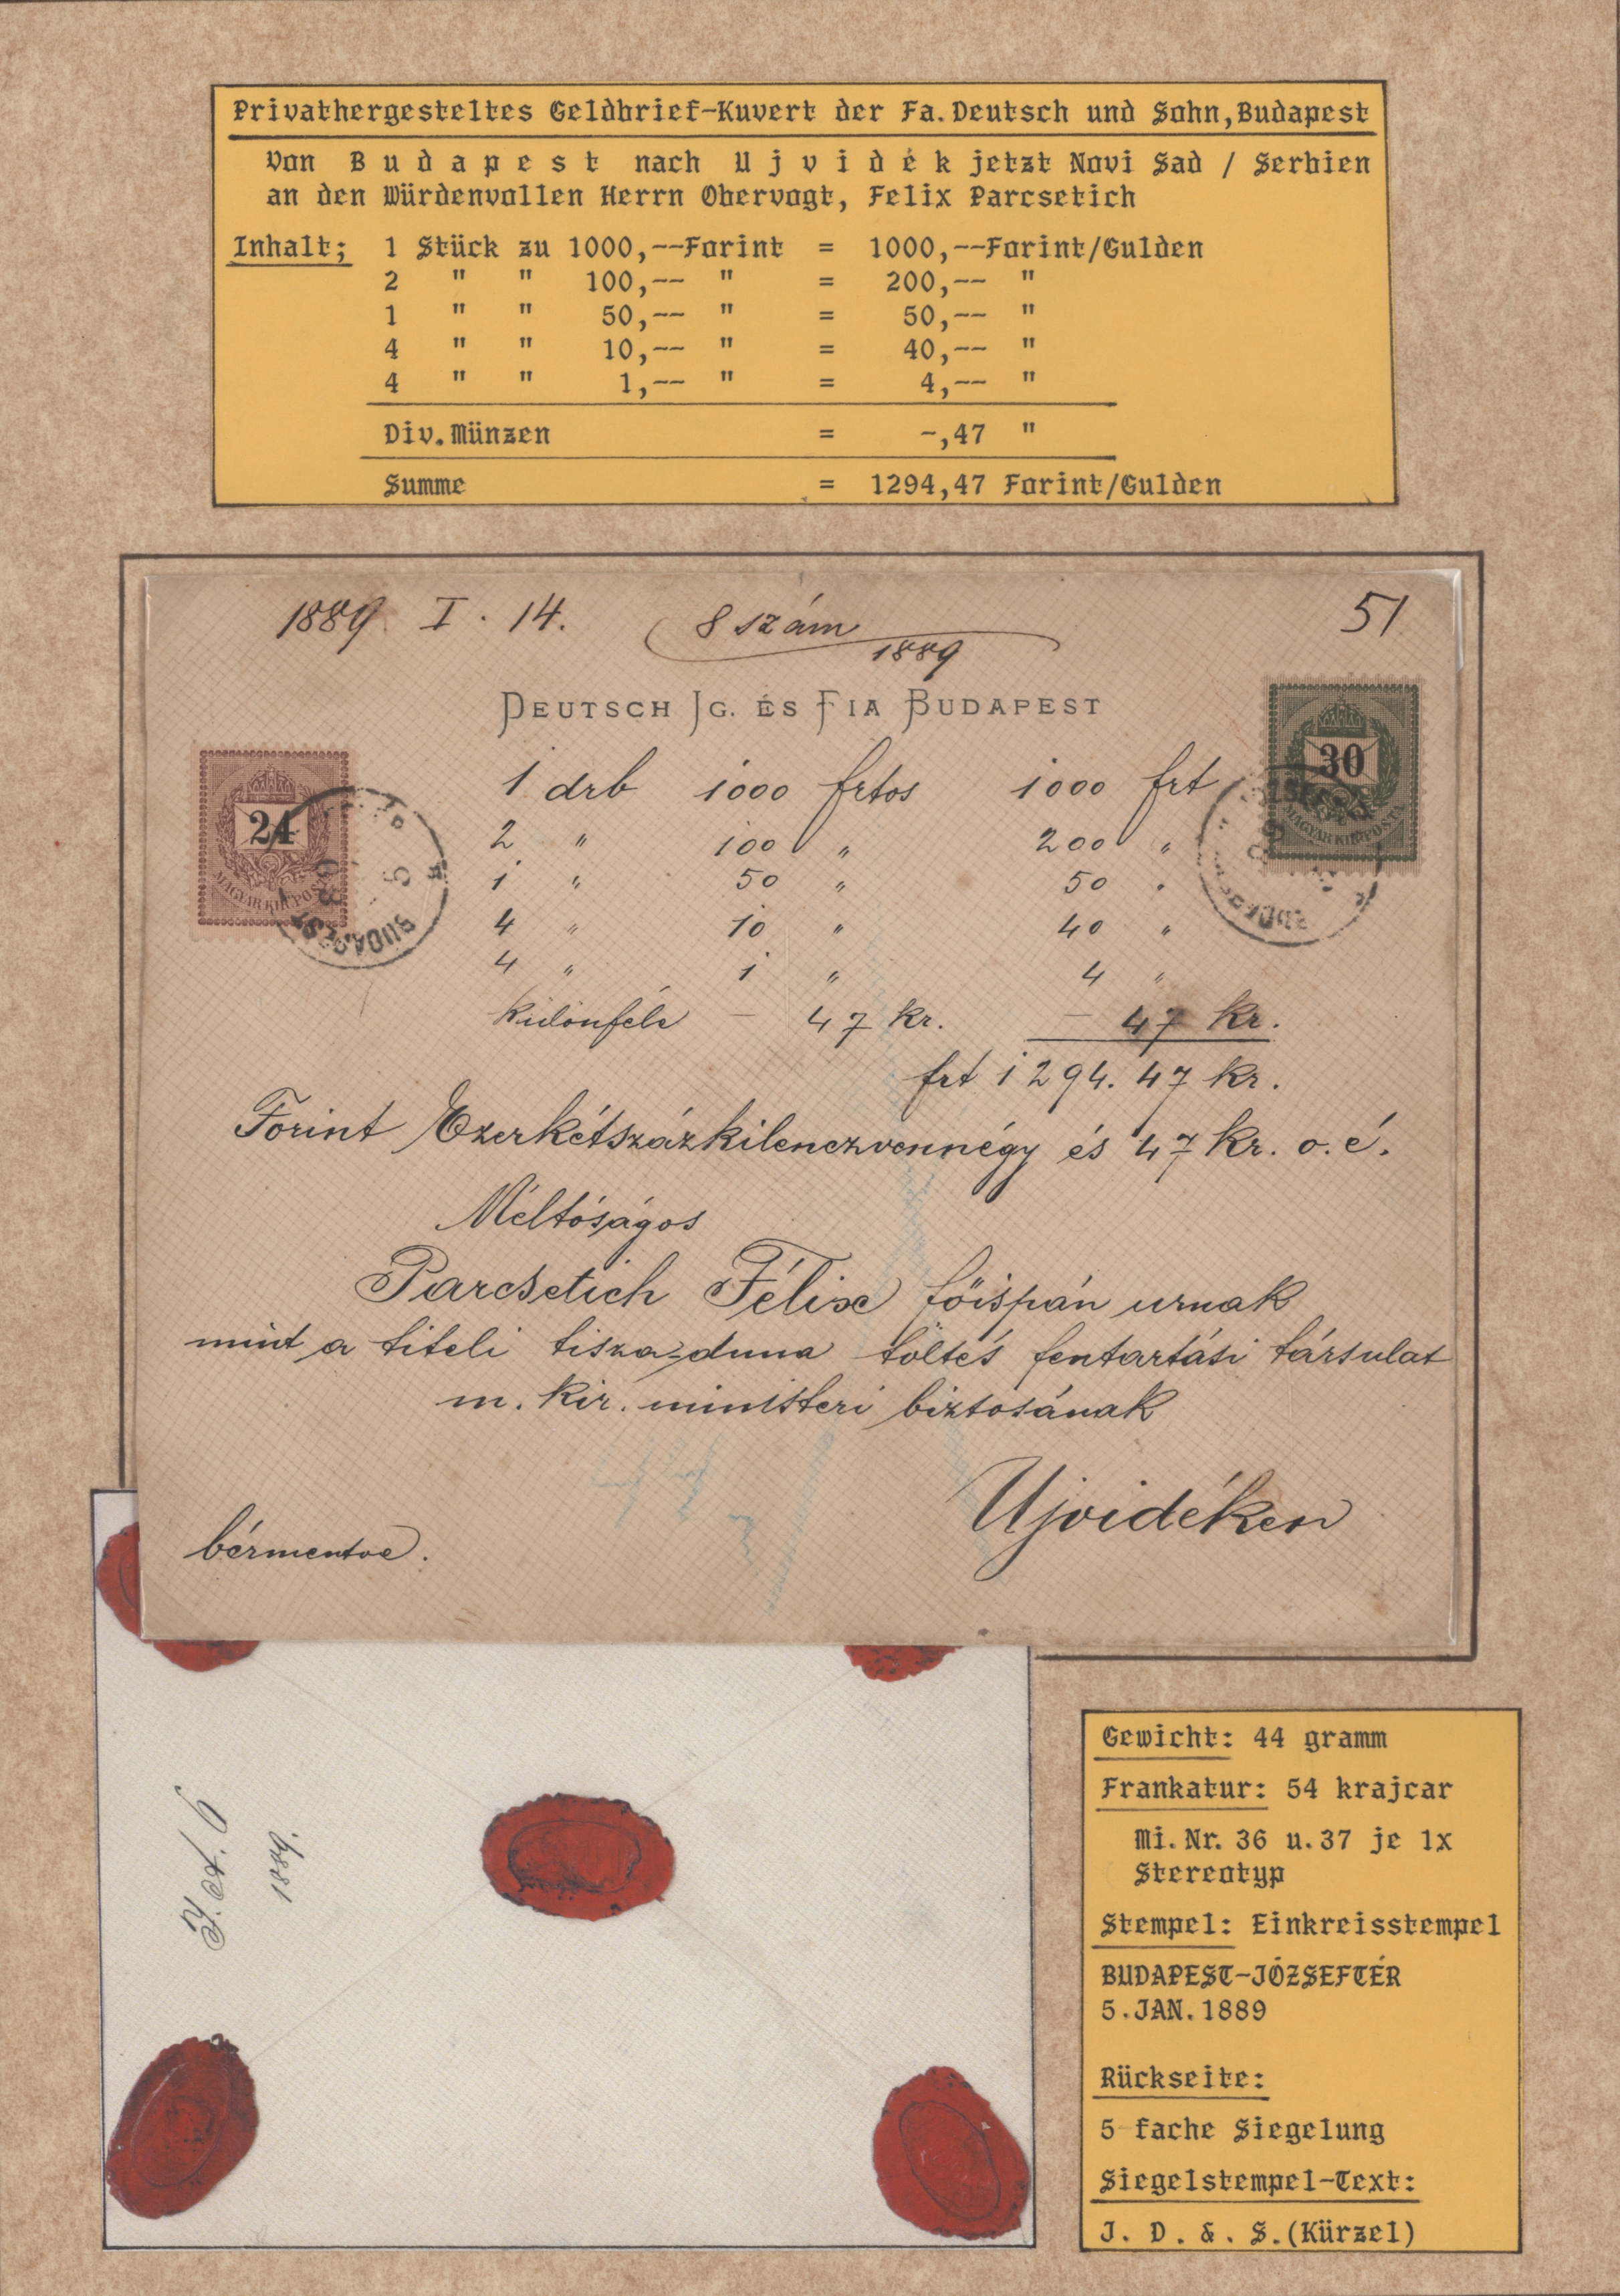 Privathergesteltes Geldbrief-Kuvert der Fa.Deutsch und Sohn,Budapest
Von B u d a p e s t nach U j v i d é k jetzt Novi Sad / Serbien
an den Würdenvollen Herrn Obervogt, Felix Parcsetich
Inhalt; 1 Stück zu 1000,--Forint = 1000,--Forint/Gulden
2 " " 100,-- " = 200,-- "
1 " " 50,-- " = 50,-- "
4 " " 10,-- " = 40,-- "
4 " " 1,-- " = 4,-- "
Div.Münzen = -,47 "
Summe = 1294,47 Forint/Gulden
1889 I. 14. 8 szám 51
1889
DEUTSCH IG. ÉS FIA BUDAPEST
1 drb 1000 frtos 1000 frt
2 " 100 " 200 "
1 " 50 " 50 "
4 " 10 " 40 "
4 " 1 " 4 "
különféle – 47 kr. – 47 kr.
frt 1294. 47 kr.
24
MAGYAR KIR. POSTA
BUDAPEST
5
30
MAGYAR KIR. POSTA
BUDAPEST
Forint Ezerkétszázkilenczvennégy és 47 kr. o. é.
Méltóságos
Parcsetich Félix főispán urnak
mint a titeli tisza-duna töltés fentartási társulat
m. kir. ministeri biztosának
Ujvidéken
bérmentve.
1889.
Gewicht: 44 gramm
Frankatur: 54 krajcar
Mi.Nr. 36 u.37 je 1x
Stereotyp
Stempel: Einkreisstempel
BUDAPEST-JÓZSEFTÉR
5.JAN.1889
Rückseite:
5 fache Siegelung
Siegelstempel-Text:
J. D. &. S.(Kürzel)